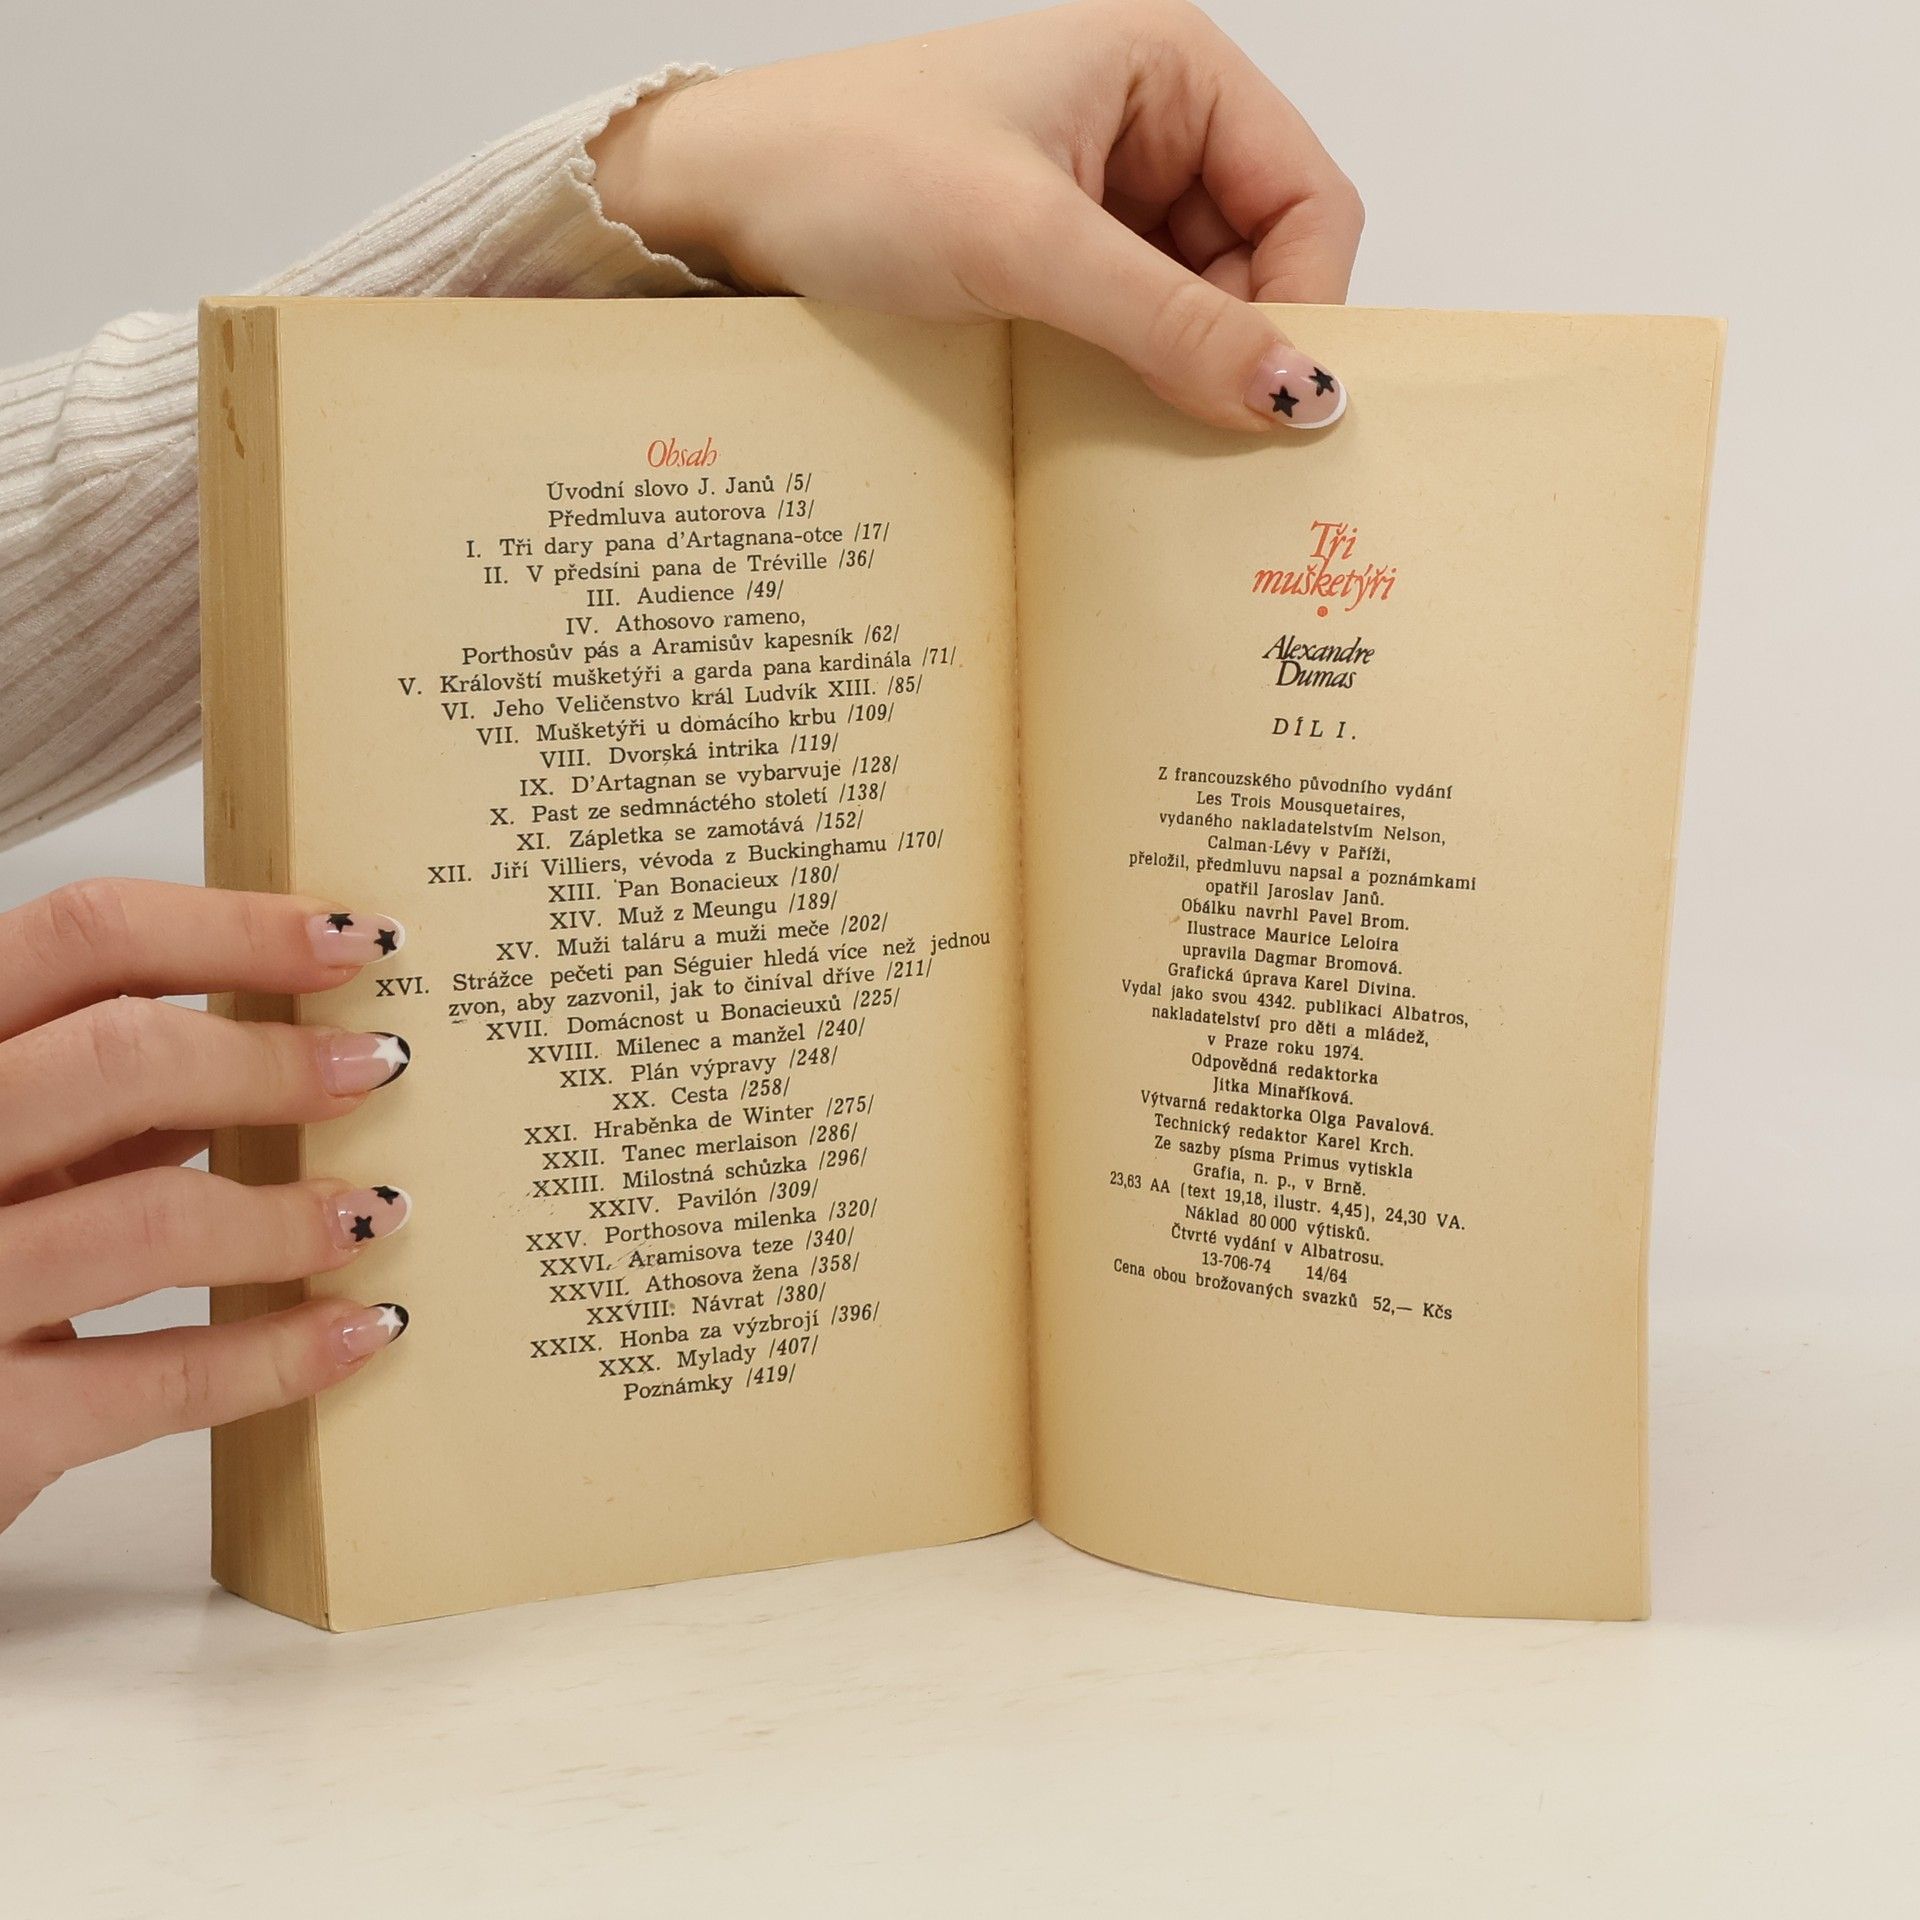 Obsah
Úvodní slovo J. Janů /5/
Předmluva autorova /13/
I. Tři dary pana d’Artagnana-otce /17/
II. V předsíni pana de Tréville /36/
III. Audience /49/
IV. Athosovo rameno,
Porthosův pás a Aramisův kapesník /62/
V. Královští mušketýři a garda pana kardinála /71/
VI. Jeho Veličenstvo král Ludvík XIII. /85/
VII. Mušketýři u domácího krbu /109/
VIII. Dvorská intrika /119/
IX. D’Artagnan se vybarvuje /128/
X. Past ze sedmnáctého století /138/
XI. Zápletka se zamotává /152/
XII. Jiří Villiers, vévoda z Buckinghamu /170/
XIII. Pan Bonacieux /180/
XIV. Muž z Meungu /189/
XV. Muži taláru a muži meče /202/
XVI. Strážce pečeti pan Séguier hledá více než jednou
zvon, aby zazvonil, jak to činíval dříve /211/
XVII. Domácnost u Bonacieuxů /225/
XVIII. Milenec a manžel /240/
XIX. Plán výpravy /248/
XX. Cesta /258/
XXI. Hraběnka de Winter /275/
XXII. Tanec merlaison /286/
XXIII. Milostná schůzka /296/
XXIV. Pavilón /309/
XXV. Porthosova milenka /320/
XXVI. Aramisova teze /340/
XXVII. Athosova žena /358/
XXVIII. Návrat /380/
XXIX. Honba za výzbrojí /396/
XXX. Mylady /407/
Poznámky /419/
Tři
mušketýři
Alexandre
Dumas
DÍL I.
Z francouzského původního vydání
Les Trois Mousquetaires,
vydaného nakladatelstvím Nelson,
Calman-Lévy v Paříži,
přeložil, předmluvu napsal a poznámkami
opatřil Jaroslav Janů.
Obálku navrhl Pavel Brom.
Ilustrace Maurice Leloira
upravila Dagmar Bromová.
Grafická úprava Karel Divina.
Vydal jako svou 4342. publikaci Albatros,
nakladatelství pro děti a mládež,
v Praze roku 1974.
Odpovědná redaktorka
Jitka Minaříková.
Výtvarná redaktorka Olga Pavalová.
Technický redaktor Karel Krch.
Ze sazby písma Primus vytiskla
Grafia, n. p., v Brně.
23,63 AA (text 19,18, ilustr. 4,45), 24,30 VA.
Náklad 80 000 výtisků.
Čtvrté vydání v Albatrosu.
13-706-74 14/64
Cena obou brožovaných svazků 52,— Kčs